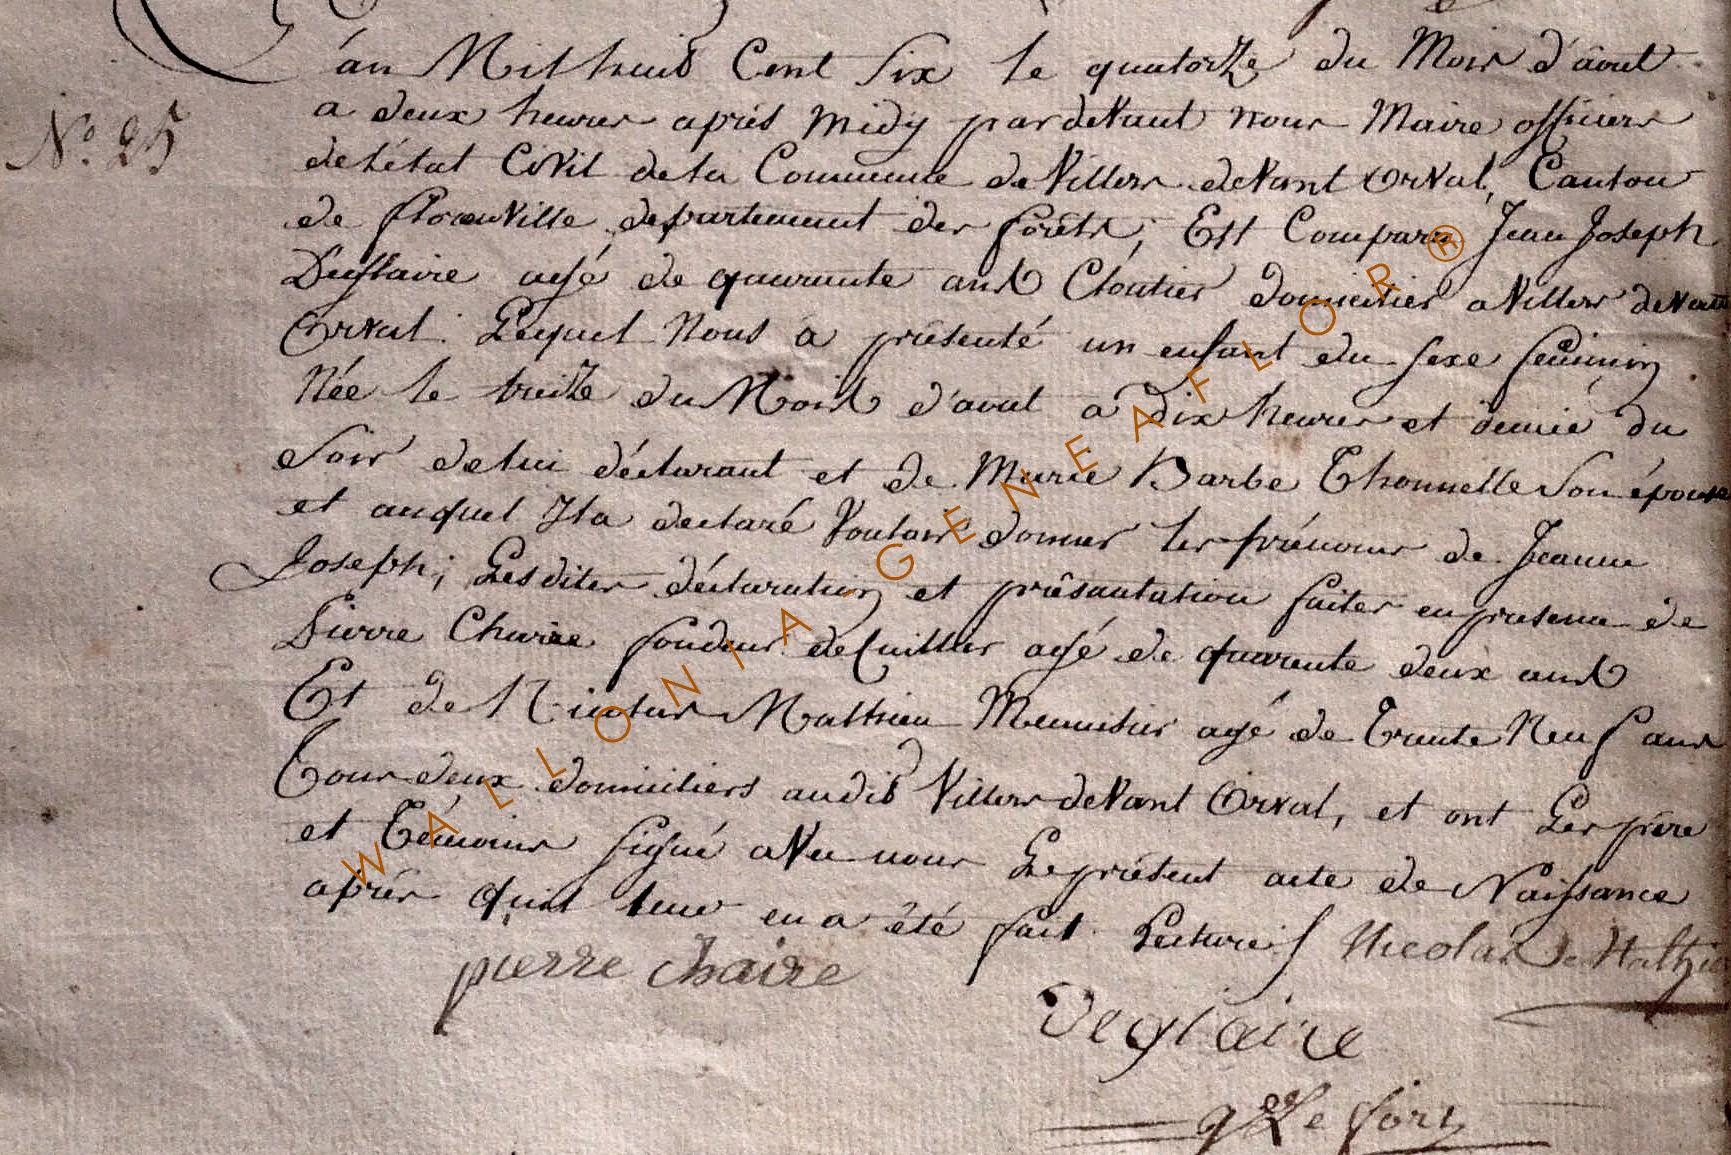 L'an Mil huit Cent Six le quatorze du Mois d'aout
N.° 25
a deux heures après Midy pardevant nous Maire officiers
de l'état Civil de la Commune de Villers devant Orval, Canton
de florenville departement des forêts, Est Comparu Jean Joseph
Deglaire agé de quarante ans Cloutier domicilier a Villers devant
Orval. Lequel Nous a présenté un enfant du sexe féminin
Née le treize du Mois d'aout a Dix heures et demie du
Soir de lui déclarant et de Marie Barbe Thonnelle Son épouse
et auquel Il a declaré Vouloir donner les prénoms de Jeanne
Joseph; Les dites déclaration et présantation faites en presence de
Pierre Chaire fondeur de Cuiller agé de quarante deux ans
Et de Nicolas Mathieu Menusier agé de Trente Neuf ans
Tous deux domiciliers audit Villers devant Orval, et ont Les père
et Témoins signé avec nous Le présent acte de Naissance
après quil leur en a été fait Lecture Nicolas Mathieu
pierre chaire
deglaire
Le fort
WALLONIA - GENEAFLOR®